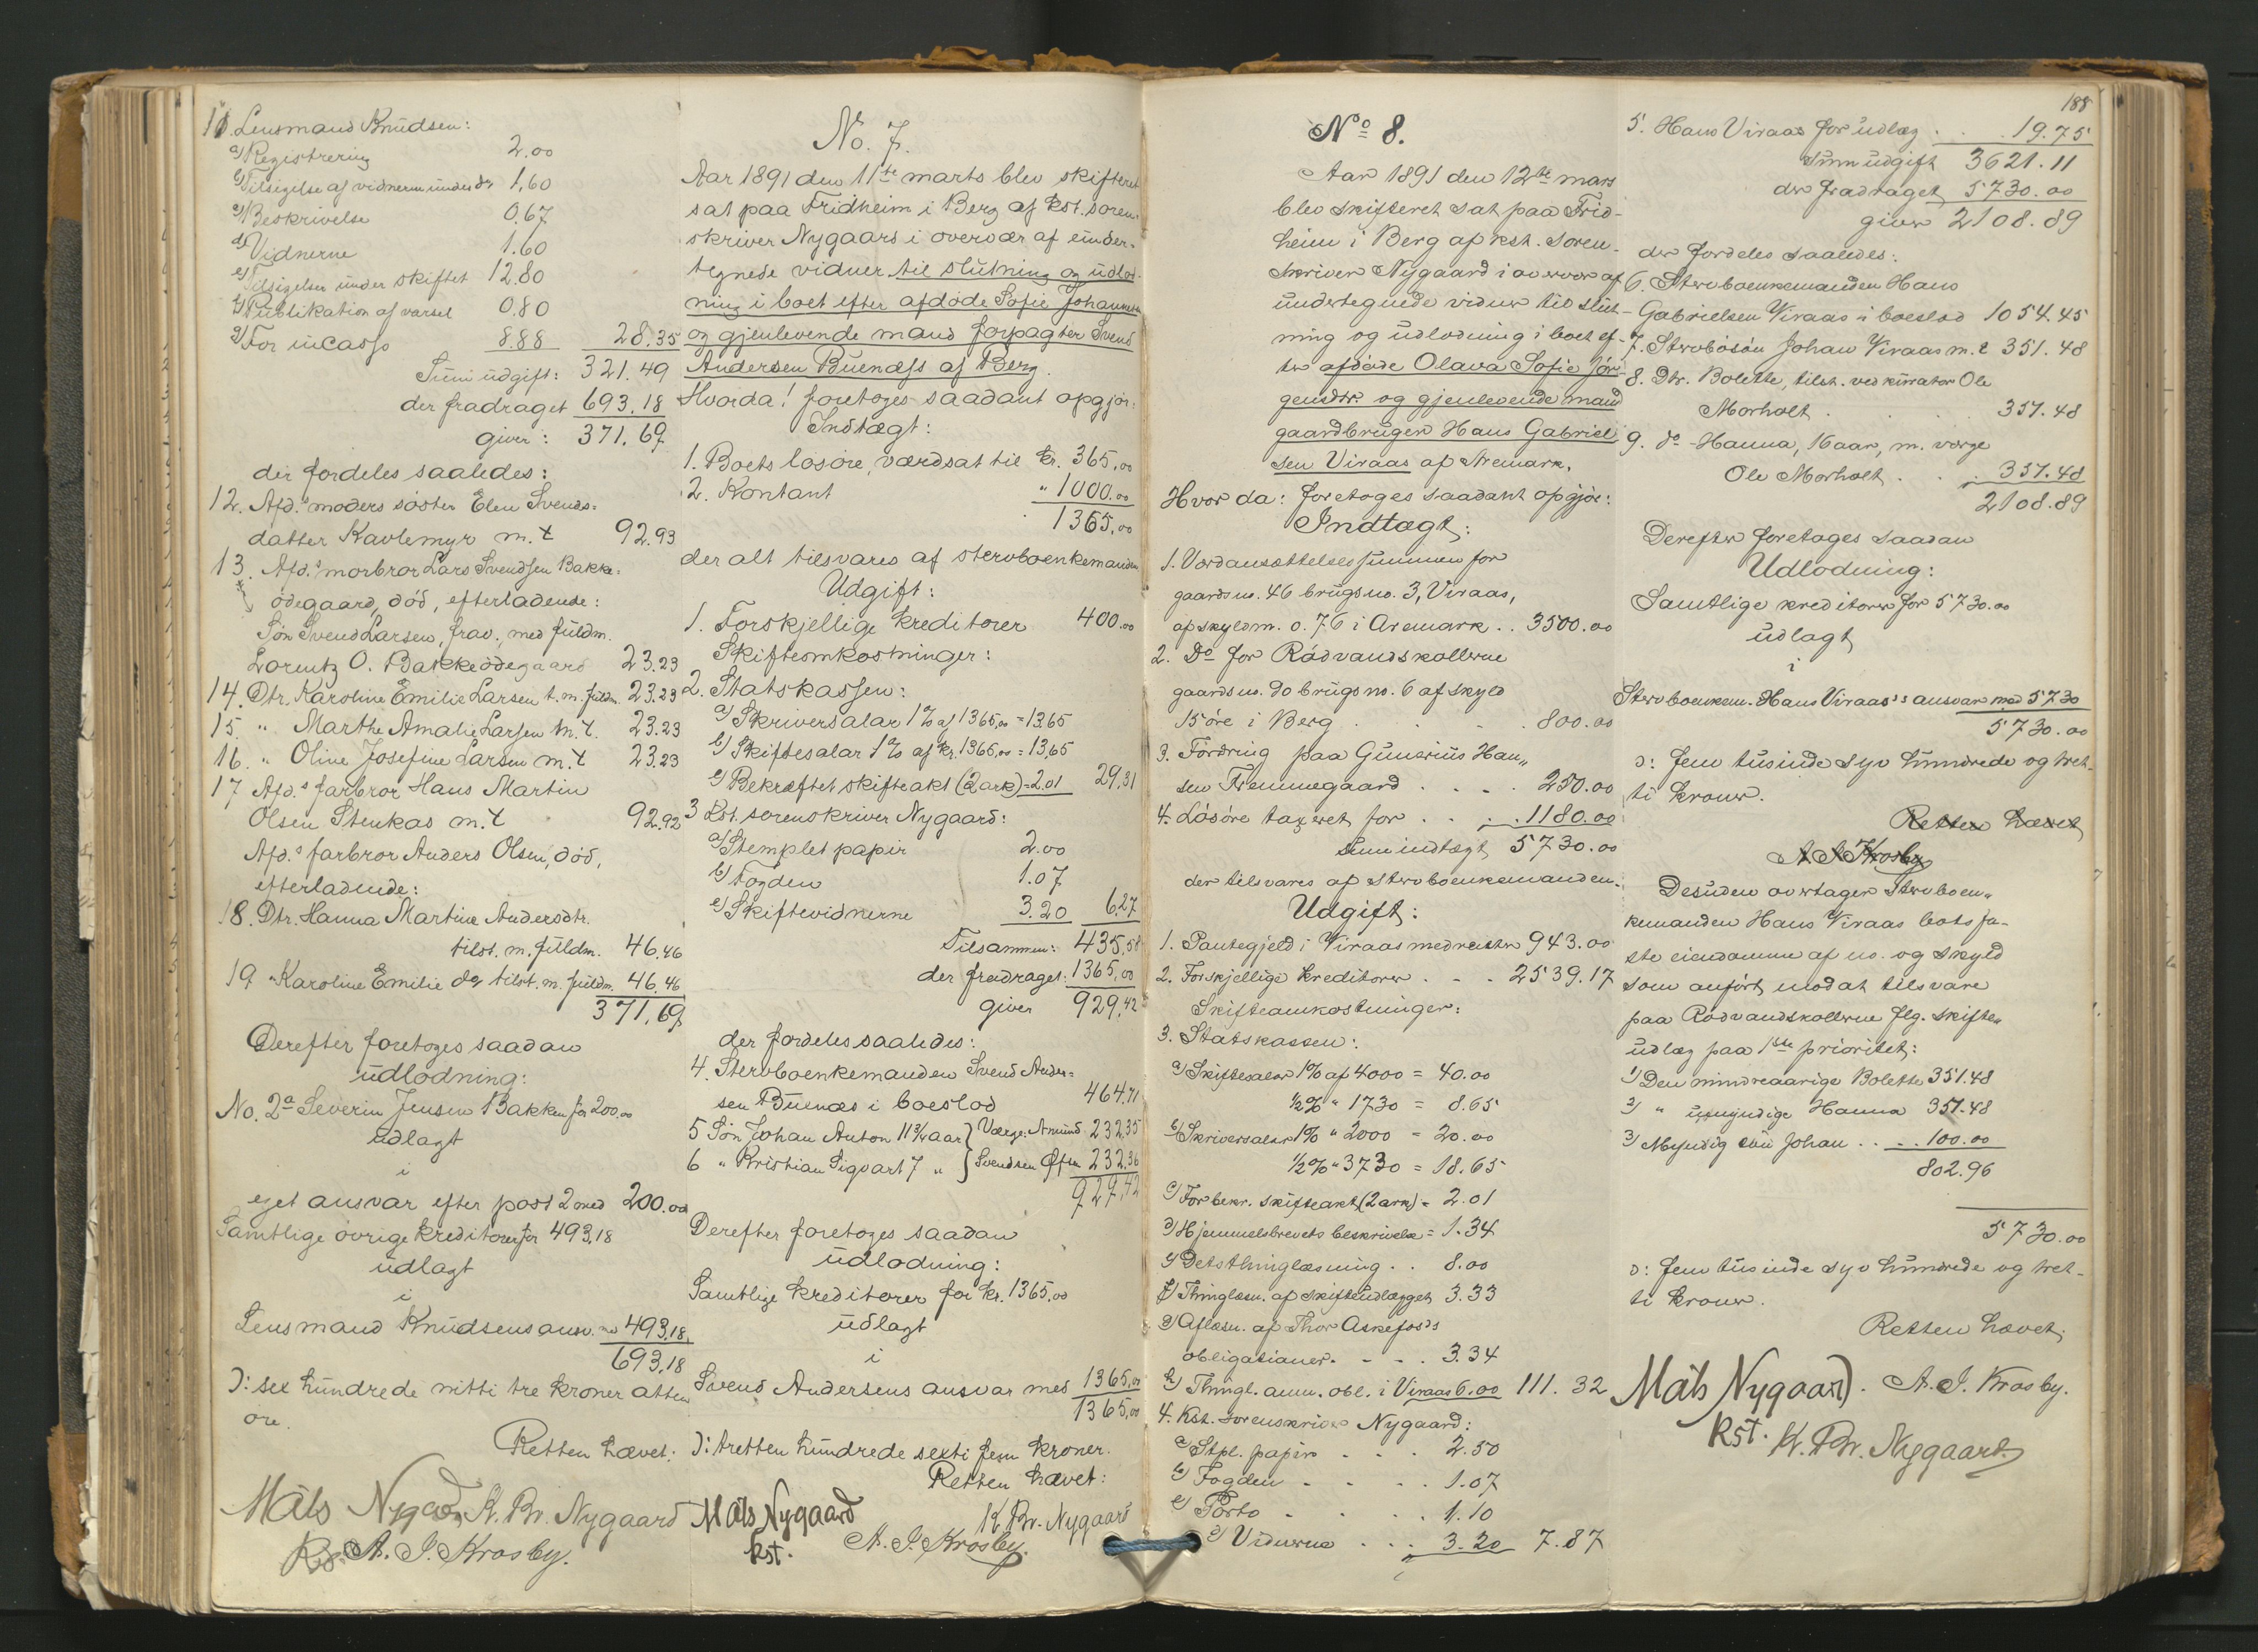 11. Lensmand Knudsen:
a) Registrering 2.00
b) Tilsigelse af vidnerne under do 1,60
c) Beskrivelse 0.67
d) Vidnerne 1.60
e) Tilsigelser under skiftet 12.80
f) Publikation af varsel 0.80
g) For incasso 8.88 28.35
Sum udgift: 321.49
der fradraget 693.18
giver: 371.69
der fordeles saaledes:
12. Afd.s moders söster Elen Svends-
datter Kavlemyr m. t 92.93
13. Afd.s morbror Lars Svendsen Bakke-
ödegaard, död, efterladende:
Sön Svend Larsen, frav., med fuldm.
Lorentz O. Bakkeödegaard 23.23
14. Dtr. Karoline Emilie Larsen t. m. fuldm. 23.23
15. " Marthe Amalie Larsen m. t. 23.23
16. " Oline Josefine Larsen m. t 23.23
17 Afd.s farbror Hans Martin
Olsen Stenkas m. t 92.92
Afd.s farbror Anders Olsen, död,
efterladende:
18. Dtr. Hanna Martine Andersdtr.
tilst. m. fuldm. 46.46
19 " Karoline Emilie do tilst. m. fuldm. 46.46
371,69
Derefter foretages saadan
udlodning:
No. 2a Severin Jensen Bakken for 200.00
udlagt
i
eget ansvar efter post 2 med 200.00
Samtlige övrige kreditorer for 493,18
udlagt
i
Lensmand Knudsens ansv. med 493,18
693,18
ɔ: sex hundrede nitti tre kroner atten
öre.
Retten hævet:
Mats Nygaard K. Br. Nygaard
Kst. A. J. Krosby.
No. 7.
Aar 1891 den 11te marts blev skifteret
sat paa Fridheim i Berg af kst. soren-
skriver Nygaard i overvær af under-
tegnede vidner til slutning og udlod-
ning i boet efter afdöde Sofie Johannesd.
og gjenlevende mand forpagter Svend
Andersen Buenæss af Berg.
Hvorda! foretoges saadant opgjör:
Indtægt:
1. Boets lösöre, værdsat til kr. 365,00
2. Kontant " 1000.00
1365,00
der alt tilsvares af stervboenkemanden
Udgift:
1. Forskjellige kreditorer 400.00
Skifteomkostninger:
2. Statskassen:
a) Skriversalar 1% af 1365,00 = 13.65
b) Skiftesalar 1% af kr. 1365,00 = 13,65
c) Bekræftet skifteakt (2 ark) = 2.01 29,31
3 Kst. sorenskriver Nygaard:
a) Stemplet papir 2.00
b) Fogden 1.07
c) Skiftevidnerne 3.20 6.27
Tilsammen: 435,58
der fradraget: 1365,00
giver 929,42
der fordeles saaledes:
4. Stervboenkemanden Svend Ander-
sen Buenæs i boeslod 464.71
5 Sön Johan Anton 11 3/4 aar } Værge: Amund 232,35
6 " Kristian Sigvart 7 " } Svendsen 232.36
929,42
Derefter foretoges saadan
udlodning:
Samtlige kreditorer for kr. 1365,00
udlagt
i
Svend Andersens ansvar med 1365,00
1365,00
ɔ: tretten hundrede sexti fem kroner.
Retten hævet:
Mats Nygaard K Br. Nygaard
kst. A. J. Krosby.
No 8.
Aar 1891 den 12te mars
blev skifteret sat paa Frid-
heim i Berg af kst. soren-
skriver Nygaard i overvær af
undertegnede vidner til slut-
ning og udlodning i boet ef-
ter afdöde Olava Sofie Jör-
gensdtr og gjenlevende mand
gaardbruger Hans Gabriel-
sen Viraas af Aremark.
Hvor da: foretoges saadant opgjör:
Indtægt:
1. Værdansættelsessummen for
gaardsno. 46 brugsno. 3, Viraas,
af skyldm. 0.76 i Aremark . . 3500.00
2. Do for Rödvandskollerne
gaardsno. 90 brugsno. 6 af skyld
15 öre i Berg . . . 800.00
3. Fordring paa Gunerius Han„
sen Fremmegaard . . . . 250.00
4. Lösöre taxeret for . . . 1180.00
Sum indtægt 5730.00
der tilsvares af stervboenkemanden.
Udgift:
1. Pantegjeld i Viraas med renter 943.00
2. Forskjellige kreditorer . . . 2539.17
Skifteomkostninger:
3. Statskassen:
a) Skiftesalar 1% af 4000 = 40.00
1/2% " 1730 = 8.65
b) Skriversalar 1% " 2000 = 20.00
1/2% " 3730 = 18.65
c) For bekr. skifteakt (2 ark) = 2.01
d) Hjemmelsbrevets beskrivelse = 1.34
e) Dets thinglæsning . . 8.00
f) Thinglæsn. af skifteudlægget 3.33
g) Aflæsn. af Thor Askefos's
obligationer . . . . 3.34
h) Thingl. ann. obl. i Viraas 6.00 111.32
4. Kst. sorenskriver Nygaard:
a) Stpl. papir . . . 2.50
b) Fogden . . . . 1.07
c) Porto . . . . 1.10
d) Vidnerne . . . 3.20 7.87
188
5. Hans Viraas for udlæg . . 19.75
Sum udgift 3621.11
der fradraget 5730.00
giver 2108.89
der fordeles saaledes:
6. Stervboenkemanden Hans
Gabrielsen Viraas i boeslod 1054.45
7. Stervbosön Johan Viraas m. t 351.48
8. Dtr. Bolette, tilst. ved kurator Ole
Morholt . . . . 351.48
9. do - Hanna, 16 aar, m. verge
Ole Morholt . . . 351.48
2108.89
Derefter foretages saadan
Udlodning:
Samtlige kreditorer for 5730.00
udlagt
i
Stervboenkem. Hans Viraas's ansvar med 5730
5730.00
ɔ: fem tusinde syv hundrede og tret-
ti kroner.
Retten hævet
A J Krosby
Desuden overtager Stervboen„
kemanden Hans Viraas boets fa-
ste eiendomme af no. og skyld
som anfört mod at tilsvare
paa Rödvandskollerne flg. skifte„
udlæg paa 1ste prioritet:
1) Den mindreaarige Bolette 351.48
2) " umyndige Hanna 351.48
3) Myndig sön Johan . . . . 100.00
802.96
5730.00
ɔ: fem tusinde syv hundrede og tret-
ti kroner.
Retten hævet.
Mats Nygaard. A. J. Krosby.
Kst. K. Br. Nygaard.